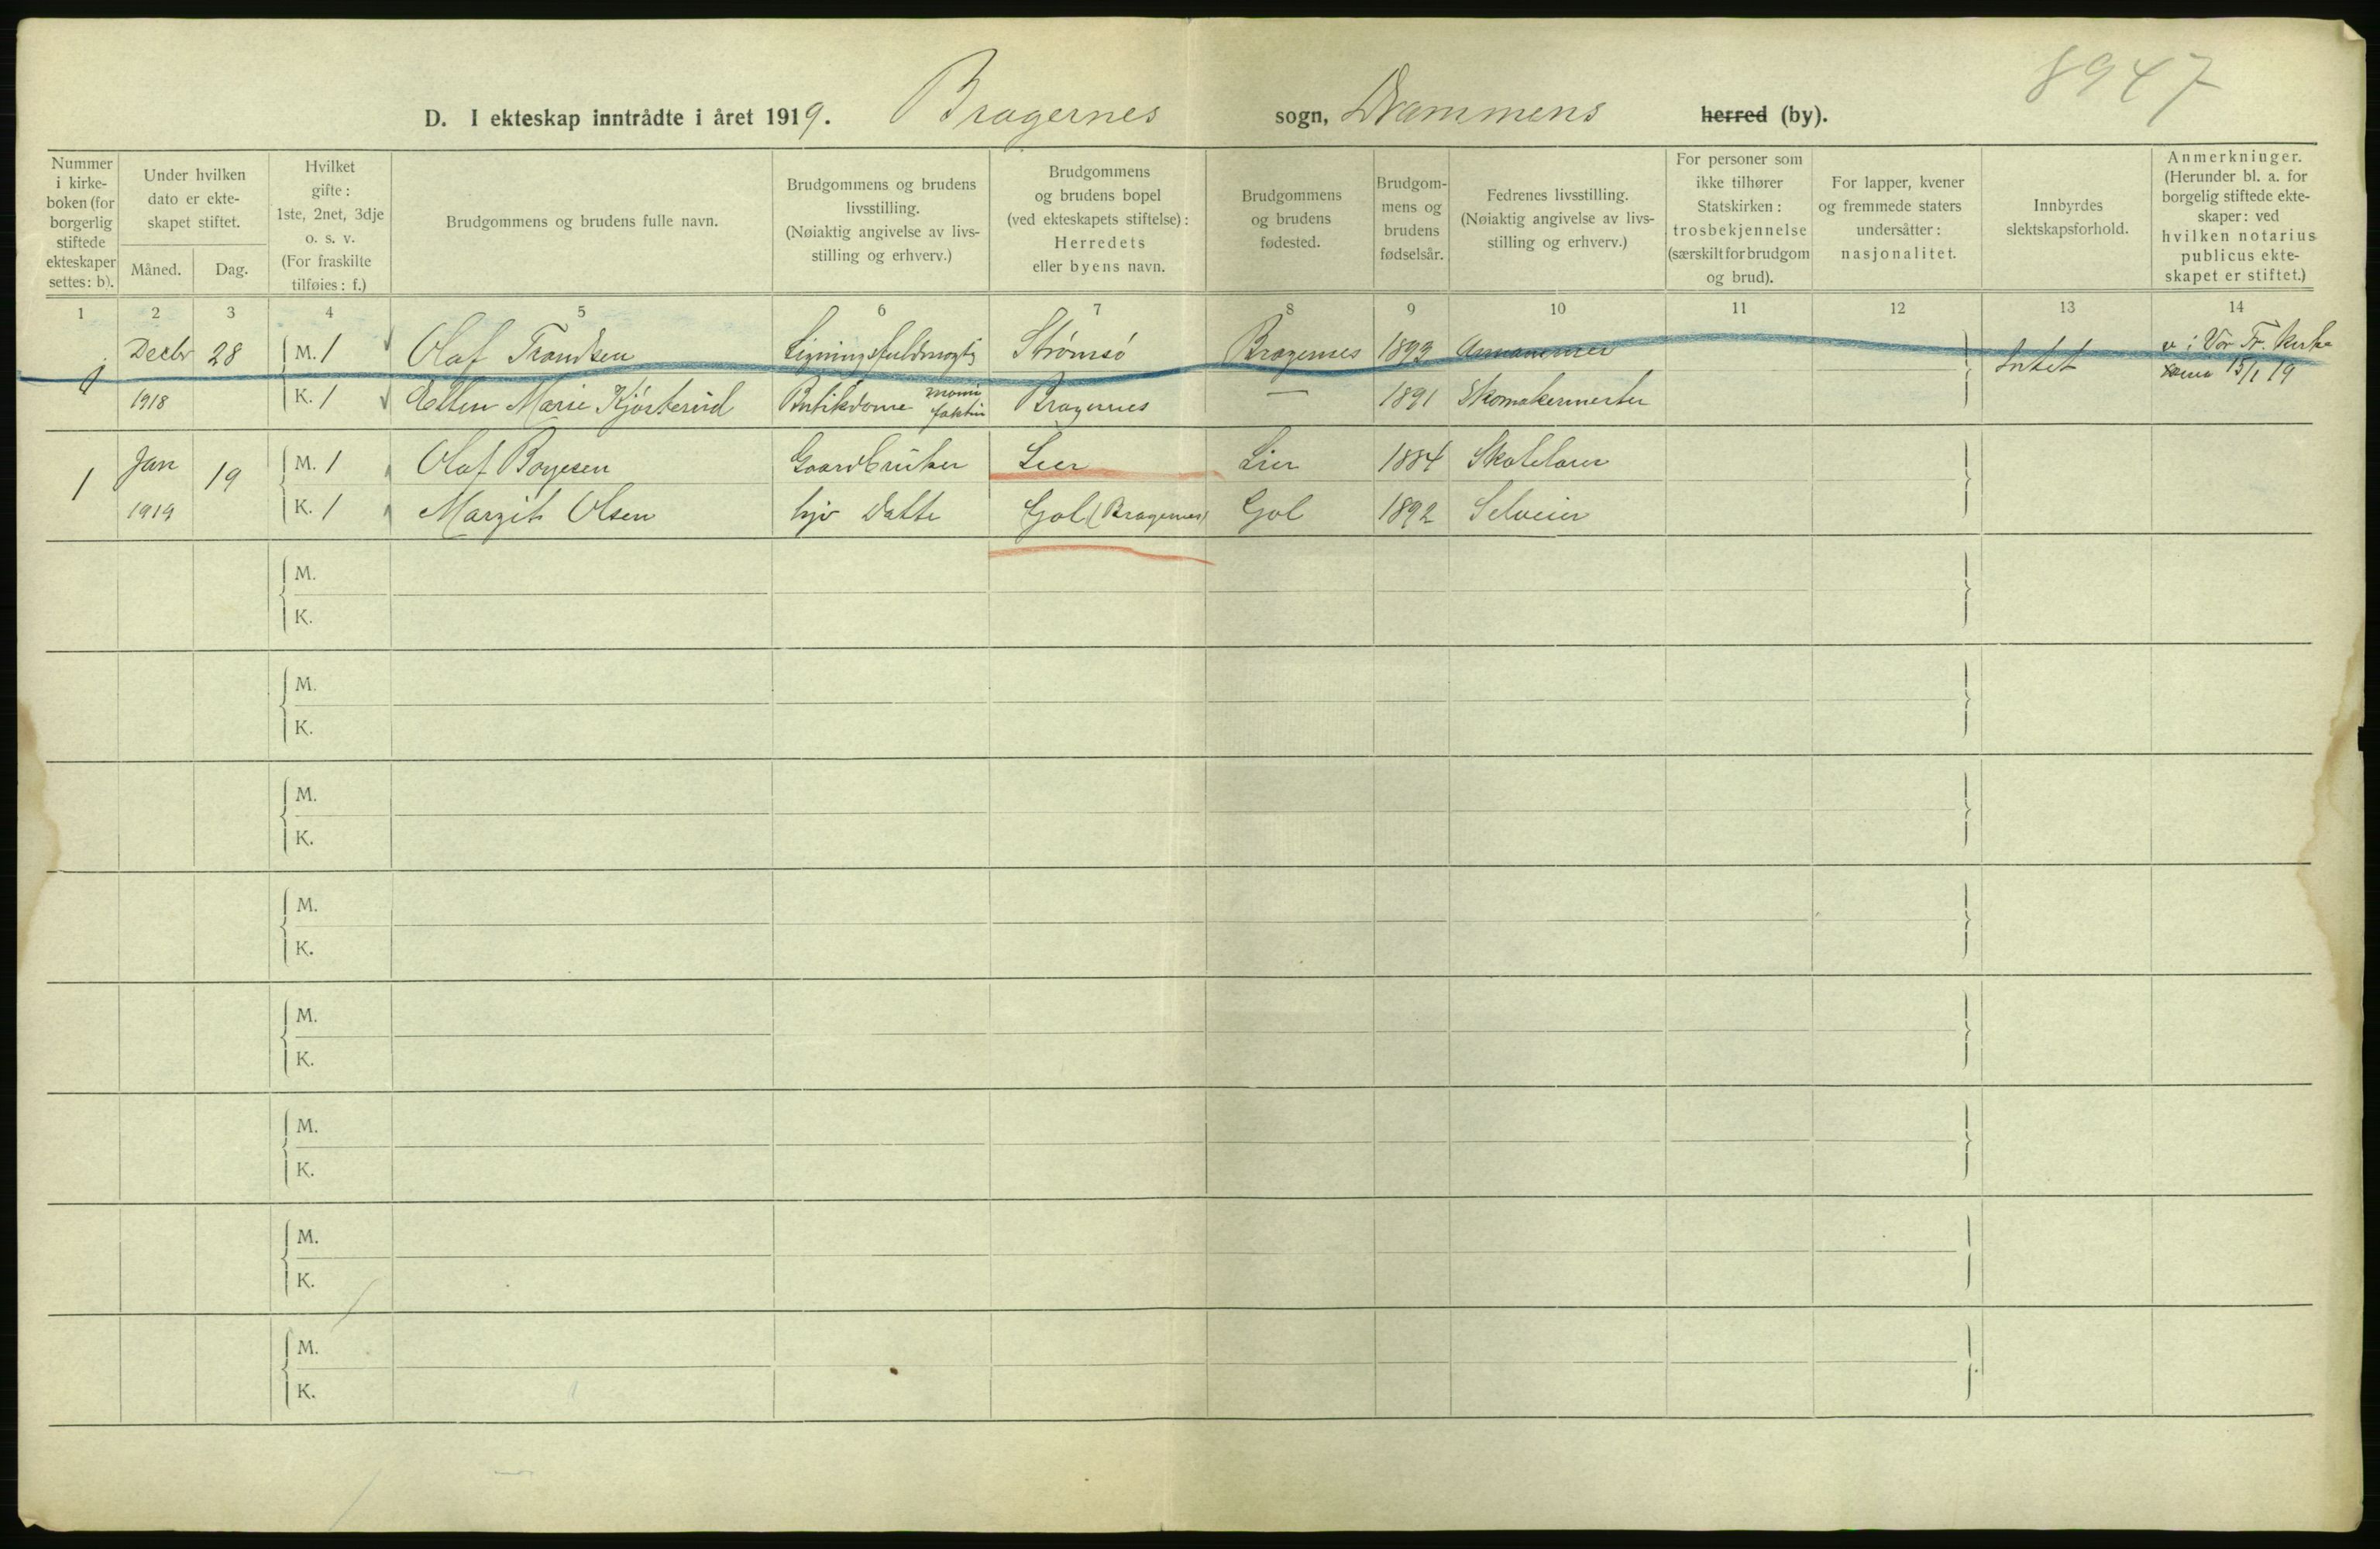 8947
D. I ekteskap inntrådte i året 1919. Bragernes sogn, Drammens herred (by).
Nummer i kirke- boken (for borgerlig stiftede ekteskaper settes: b).
Under hvilken dato er ekte- skapet stiftet.
Måned. Dag.
Hvilket gifte: 1ste, 2net, 3dje o. s. v. (For fraskilte tilføies: f.)
Brudgommens og brudens fulle navn.
Brudgommens og brudens livsstilling. (Nøiaktig angivelse av livs- stilling og erhverv.)
Brudgommens og brudens bopel (ved ekteskapets stiftelse): Herredets eller byens navn.
Brudgommens og brudens fødested.
Brudgom- mens og brudens fødselsår.
Fedrenes livsstilling. (Nøiaktig angivelse av livs- stilling og erhverv.)
For personer som ikke tilhører Statskirken: trosbekjennelse (særskilt for brudgom og brud).
For lapper, kvener og fremmede staters undersåtter: nasjonalitet.
Innbyrdes slektskapsforhold.
Anmerkninger. (Herunder bl. a. for borgelig stiftede ekte- skaper: ved hvilken notarius publicus ekte- skapet er stiftet.)
1 2 3 4 5 6 7 8 9 10 11 12 13 14
1 Decbr 28 M. 1 Olaf Trondsen Ligningsfuldmægtig Strømsø Bragernes 1893 Intet v i Vor Fr. Kirke
1918 K. 1 Ellen Marie Kjøsterud Butikdame Bragernes — 1891 Skomakermester 15/1 19
1 Jan 19 M. 1 Olaf Borgesen Gaardbruker Lier Lier 1884 Skolelærer
1919 K. 1 Margit Olsen hjv Datte Gol (Bragernes) Gol 1892 Selveier
M.
K.
M.
K.
M.
K.
M.
K.
M.
K.
M.
K.
M.
K.
M.
K.